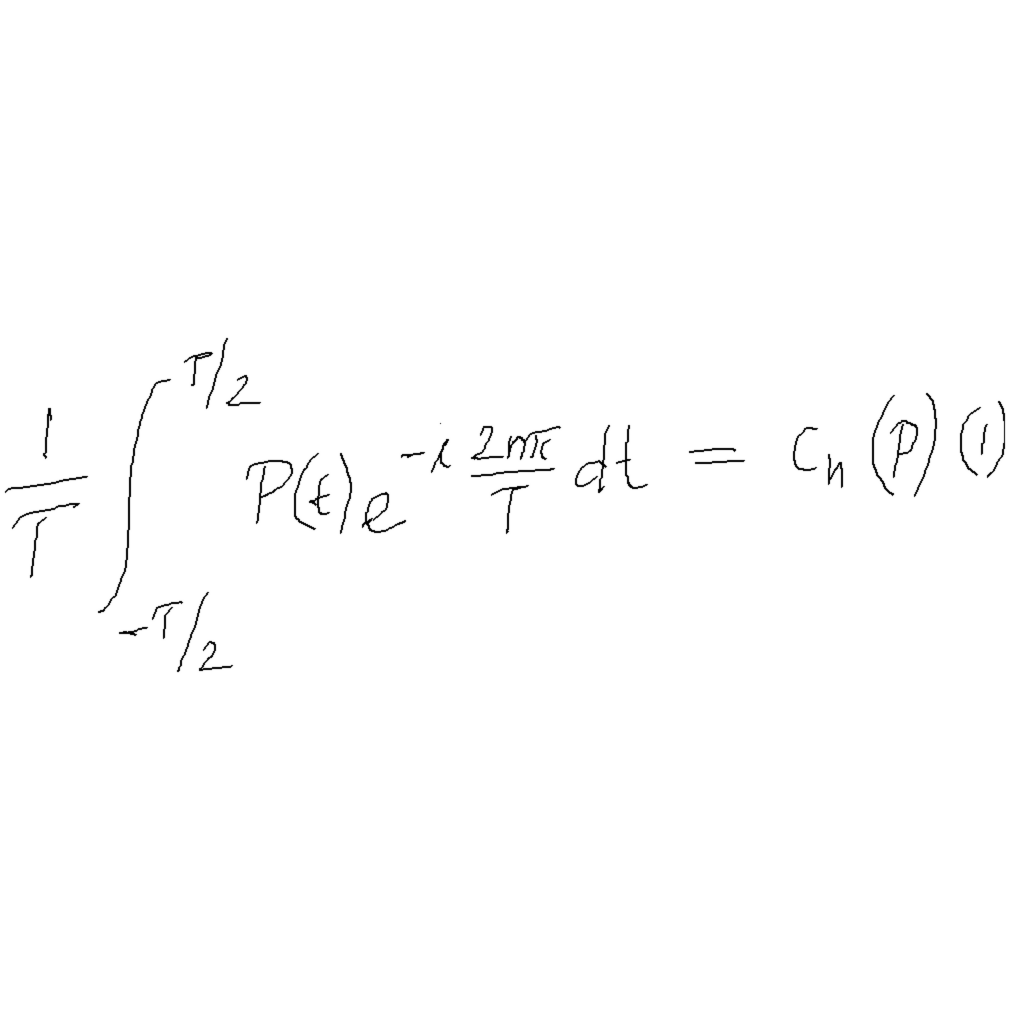 \frac{1}{T} \int_{-T/2}^{T/2} P(t) e^{-i \frac{2n\pi}{T}} dt = C_n(P) (1)